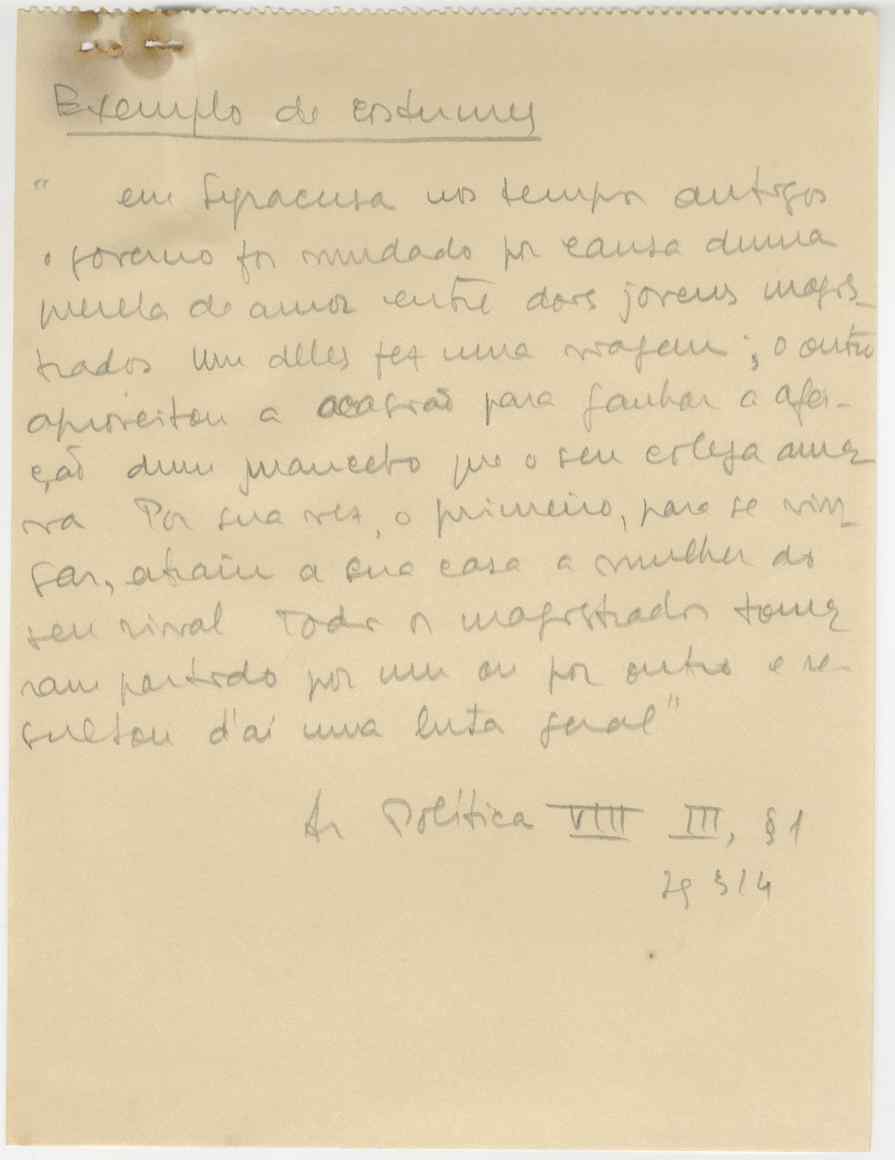 Exemplo de costumes
" em Syracusa nos tempos antigos
o governo foi mudado por causa duma
querela de amor entre dois jovens magis-
trados Um delles fez uma viagem; o outro
aproveitou a ocasião para ganhar a afei-
ção dum mancebo que o seu colega ama-
va Por sua vez, o primeiro, para se vin-
gar, atraiu a sua casa a mulher do
seu rival Todos os magistrados toma-
ram partido por um ou por outro e re-
sultou d'aí uma luta geral"
Ar Política VIII III, § 1